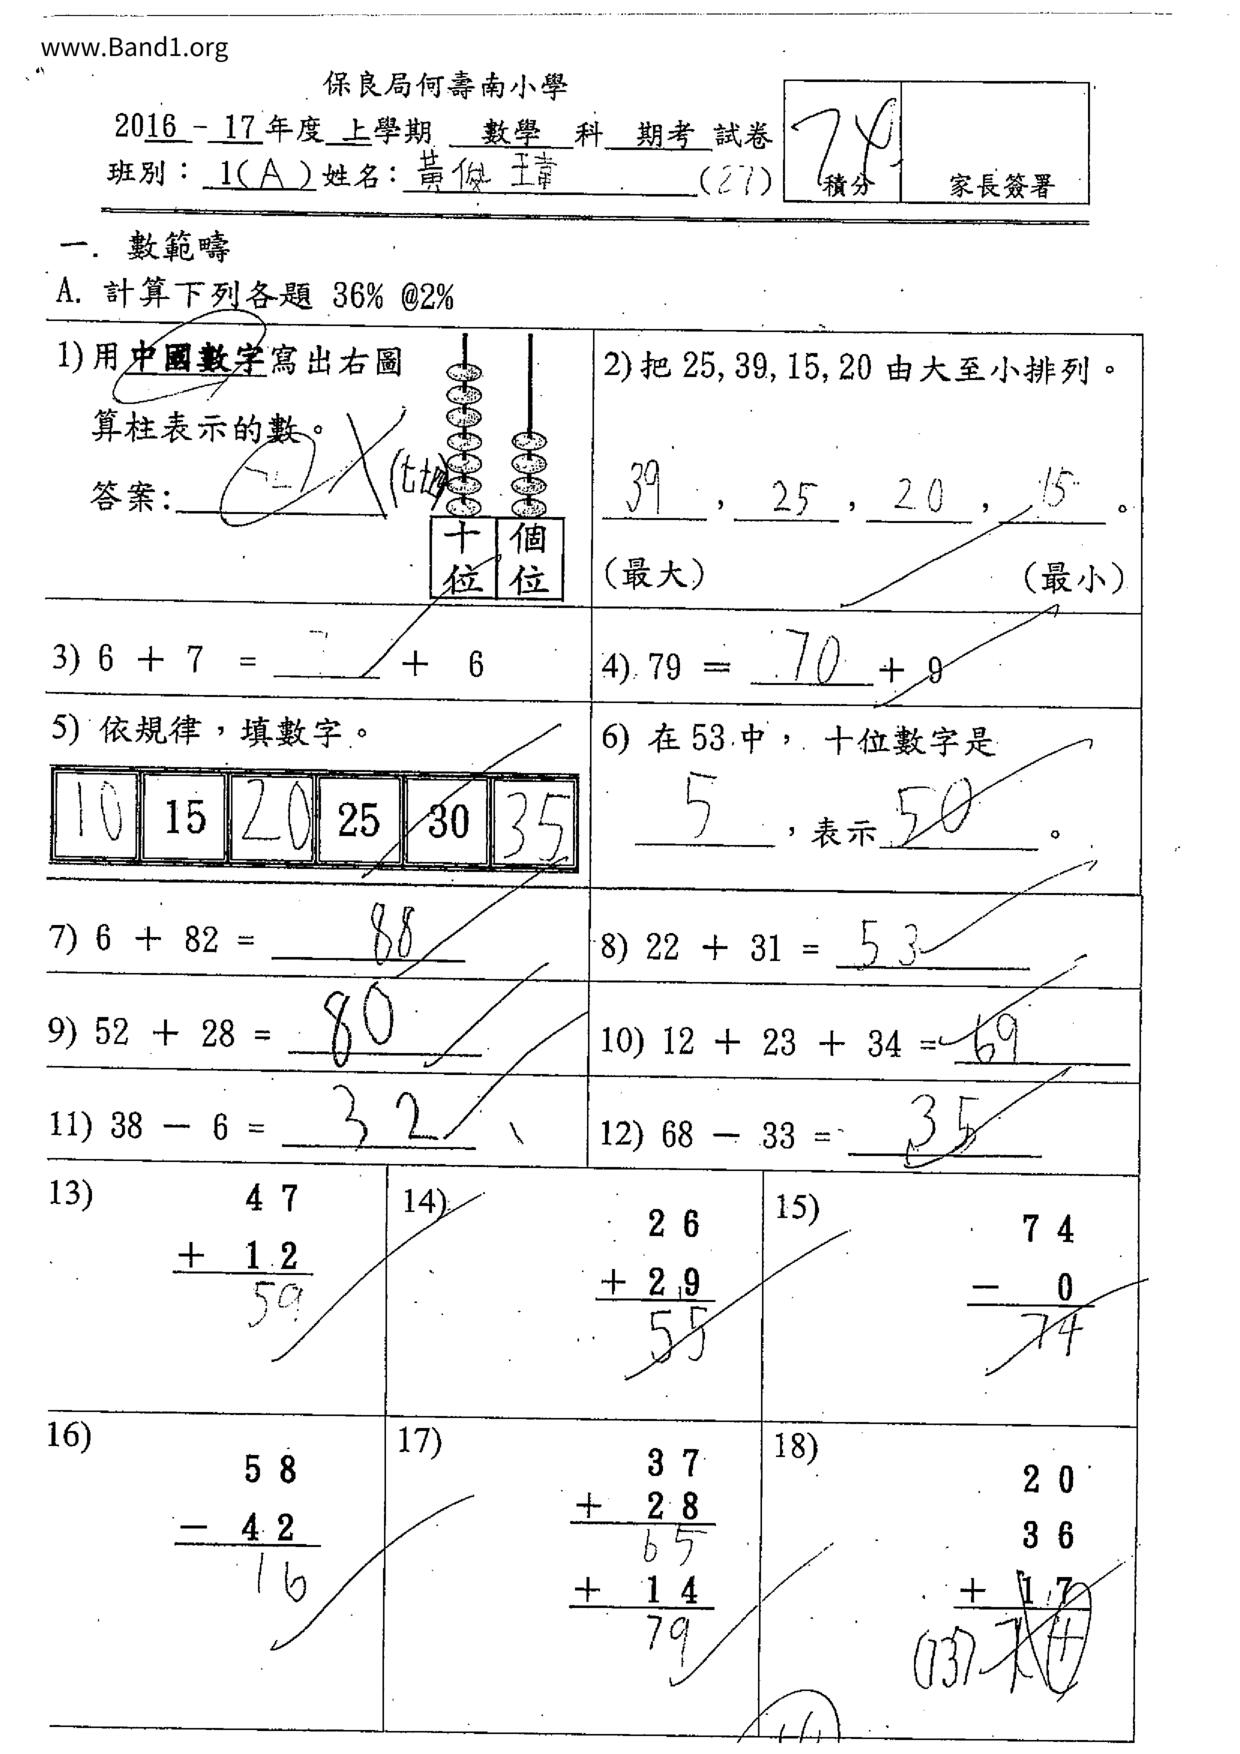 www.Band1.org
保良局何壽南小學
2016 - 17 年度 上學期 數學 科 期考 試卷
班別： 1(A) 姓名：黃俊瑋 (27)
74
積分 家長簽署
一. 數範疇
A. 計算下列各題 36% @2%
1) 用中國數字寫出右圖
算柱表示的數。
答案: (七十四)
十位 個位
2) 把 25, 39, 15, 20 由大至小排列。
39 , 25 , 20 , 15 。
(最大) (最小)
3) 6 + 7 = 7 + 6
4) 79 = 70 + 9
5) 依規律，填數字。
10 15 20 25 30 35
6) 在 53 中， 十位數字是
5 ，表示 50 。
7) 6 + 82 = 88
8) 22 + 31 = 53
9) 52 + 28 = 80
10) 12 + 23 + 34 = 69
11) 38 - 6 = 32
12) 68 - 33 = 35
13)
47
+ 12
59
14)
26
+ 29
55
15)
74
- 0
74
16)
58
- 42
16
17)
37
+ 28
65
+ 14
79
18)
20
36
+ 17
(73) 74